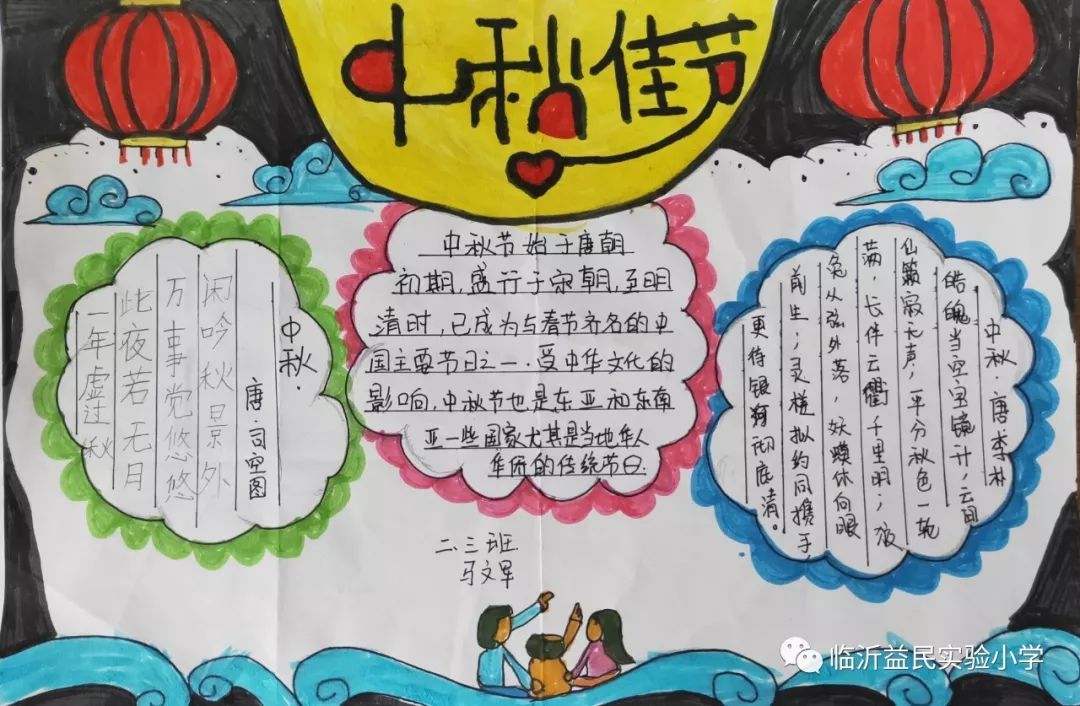 中秋佳节
中秋.
唐.司空图
闲吟秋景外
万事党悠悠
此夜若无月
一年虚过秋
中秋节始于唐朝
初期,盛行于宋朝,至明
清时,已成为与春节齐名的中
国主要节日之一.受中华文化的
影响,中秋节也是东亚和东南
亚一些国家尤其是当地华人
华侨的传统节日.
中秋.唐李朴
皓魄当空宝镜计,云目
仙籁寂无声;平分秋色一轮
满,长伴云衢千里明;液
兔从弦外落,妖蟆休向眼
前生;灵槎拟约同携手,
更待银河彻底清。
二.三班
马文军
临沂益民实验小学